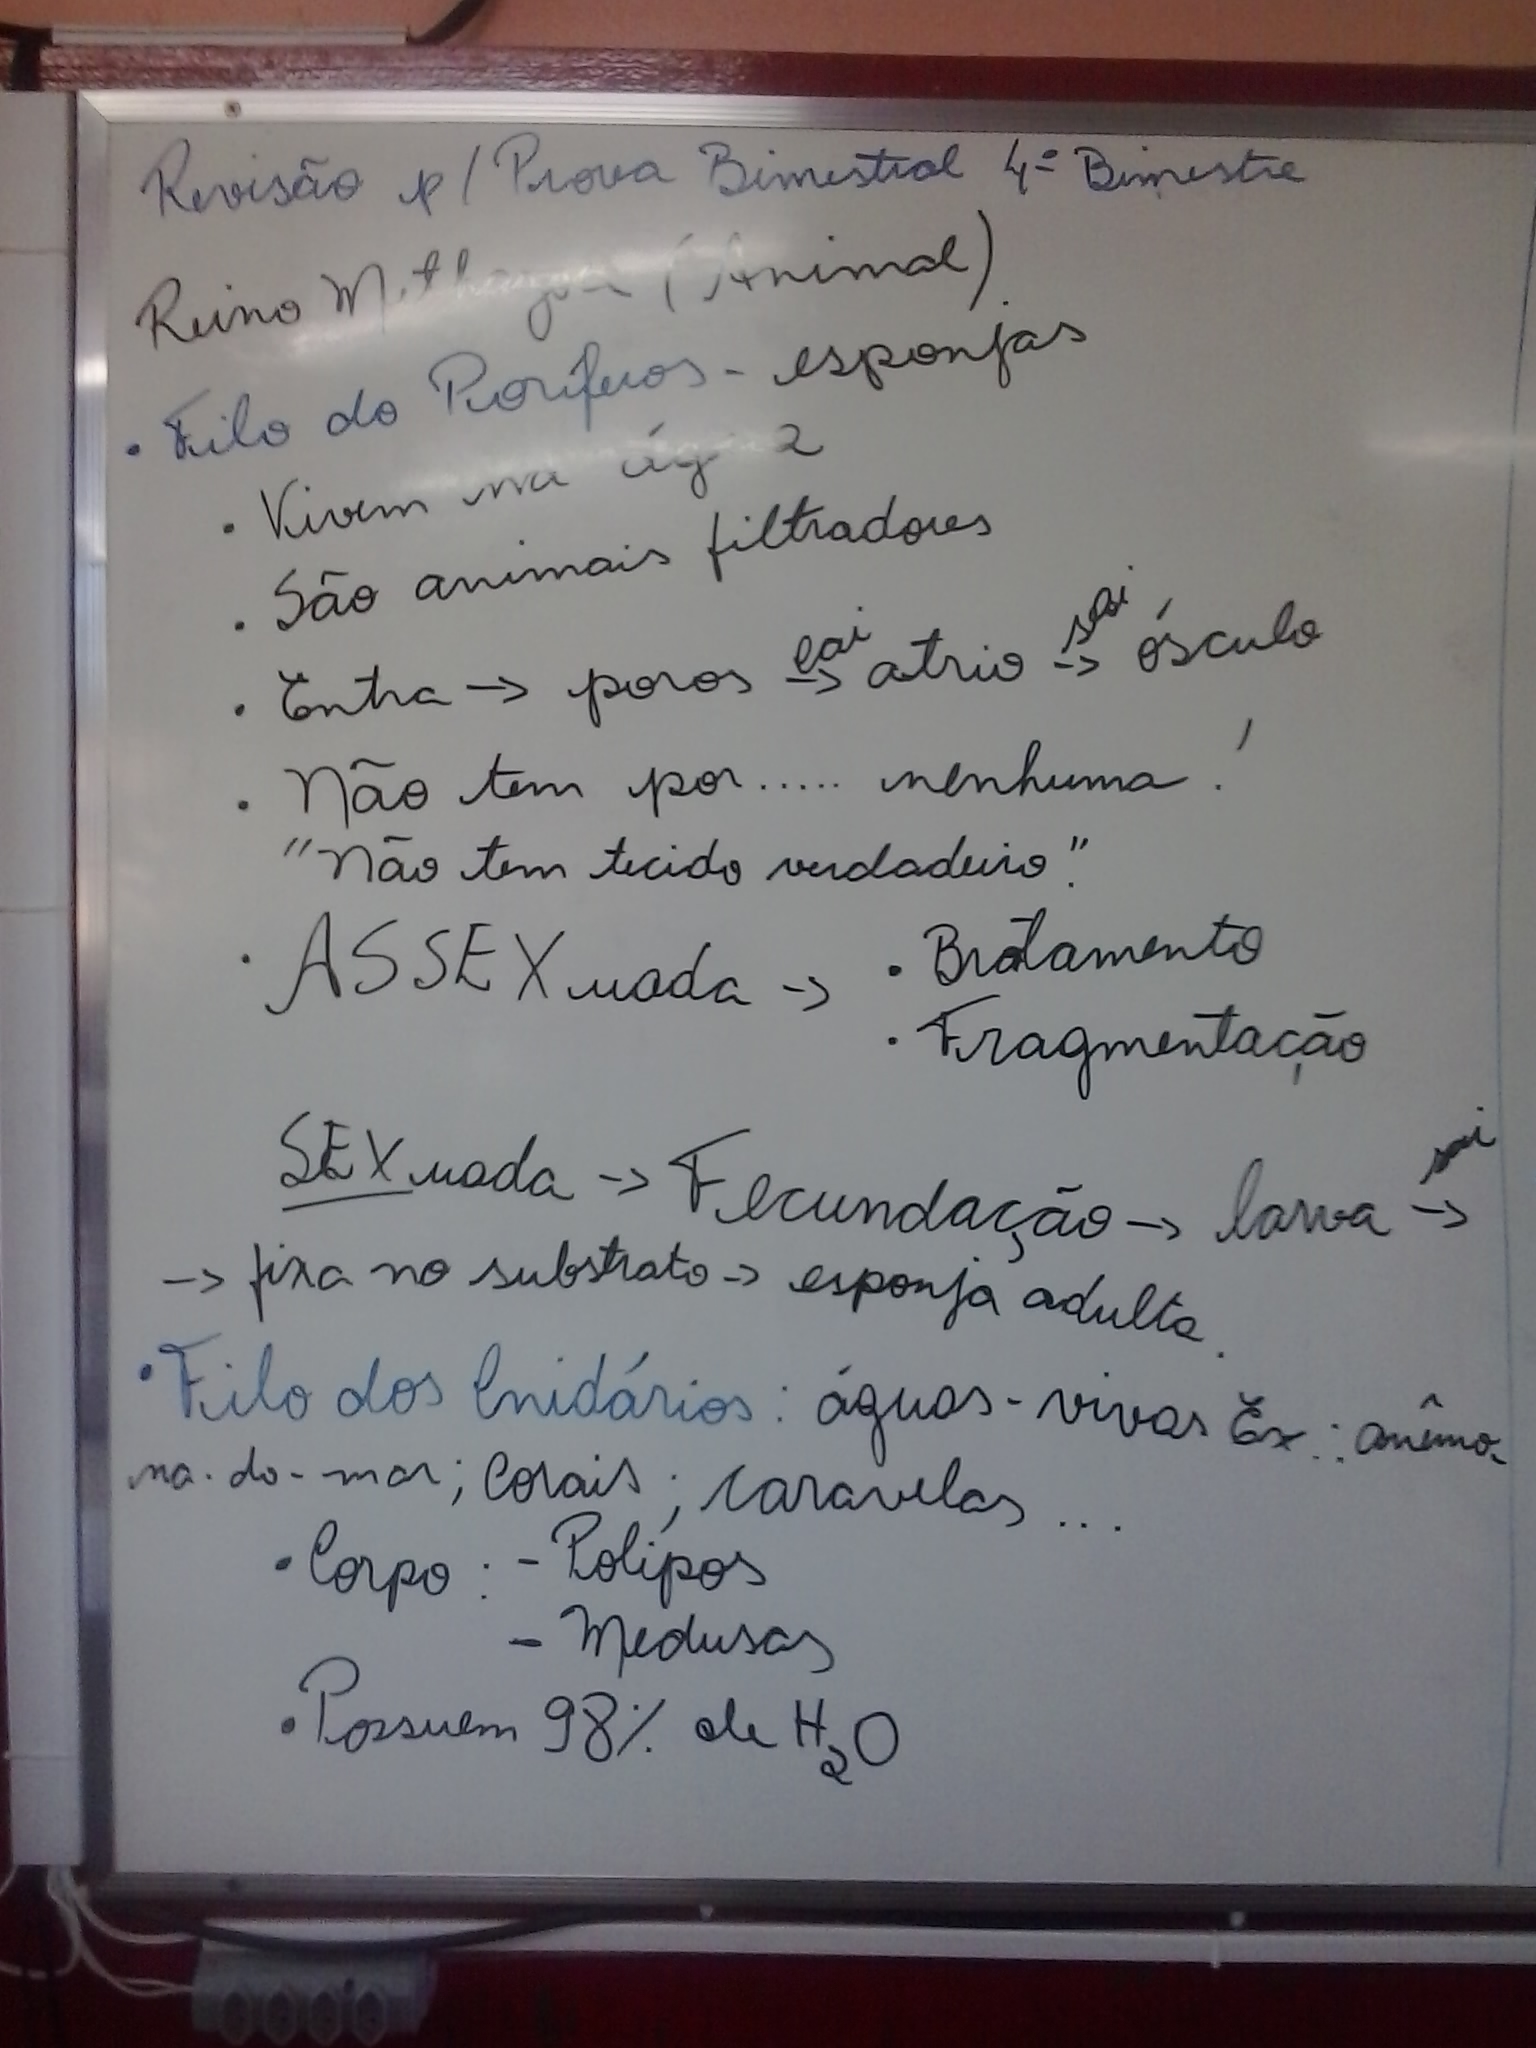 Revisão p/ Prova Bimestral 4º Bimestre
Reino (Animal).
• Filo do Poríferos - esponjas
• Vivem na água
• São animais filtradores
• Entra -> poros cai -> atrio sai -> ósculo
• Não tem por..... nenhuma!
"Não tem tecido verdadeiro".
• ASSEXuada -> • Brotamento
• Fragmentação
SEXuada -> Fecundação -> larva sai ->
-> fixa no substrato -> esponja adulta.
• Filo dos Cnidários: águas-vivas Ex.: anêmo-
na-do-mar; corais; caravelas...
• Corpo: - Polípos
- Medusas
• Possuem 98% de H2O